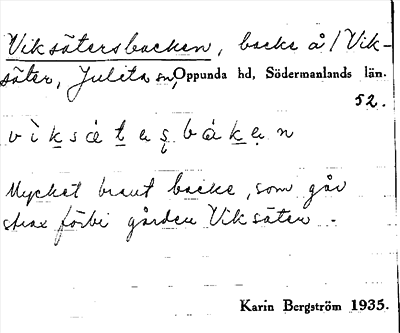 Viksätersbacken, backe å / Vik-
säter, Julita sn, Oppunda hd, Södermanlands län.
52.
Mycket brant backe, som går
strax förbi gården Viksäter.
Karin Bergström 1935.